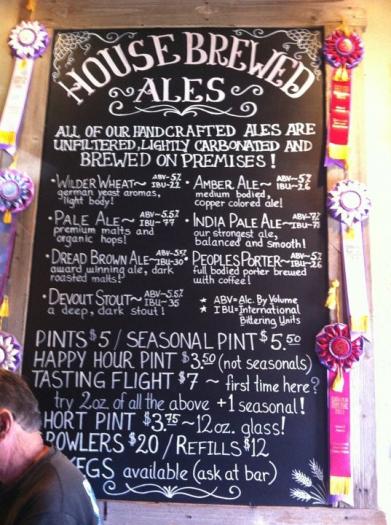 HOUSE BREWED
ALES
ALL OF OUR HANDCRAFTED ALES ARE
UNFILTERED, LIGHTLY CARBONATED AND
BREWED ON PREMISES!
• WILDER WHEAT~ ABV-5% IBU-22
german yeast aromas,
light body!
• PALE ALE~ ABV-5.5%
premium malts and
organic hops!
• DREAD BROWN ALE~
IBU-30
award winning ale, dark
roasted malts!
• DEVOUT STOUT~ ABV-5.5% IBU-35
a deep, dark stout!
• AMBER ALE~ ABV-5% IBU-26
medium bodied,
copper colored ale!
• INDIA PALE ALE~ ABV-7%
our strongest ale,
balanced and smooth!
• PEOPLES PORTER~ IBU-26
full bodied porter brewed
with coffee!
* ABV=Alc. By Volume
* IBU=International
Bittering Units
PINTS $5 / SEASONAL PINT $5.50
HAPPY HOUR PINT $3.50 (not seasonals)
TASTING FLIGHT $7 ~ first time here?
try 2oz. of all the above +1 seasonal!
HORT PINT $3.75 ~ 12 oz. glass!
ROWLERS $20 / REFILLS $12
KEGS available (ask at bar)